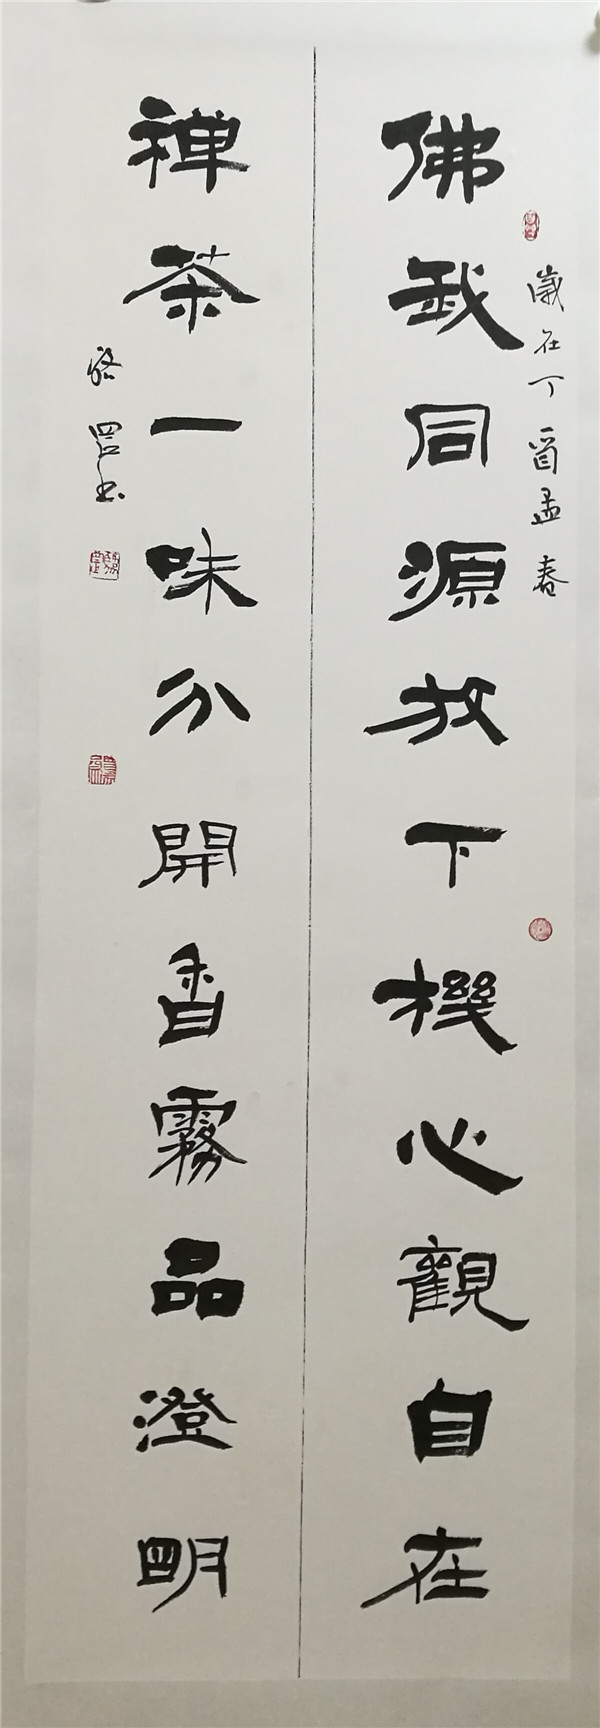 佛我同源放下機心觀自在
歲在丁酉孟春
禪茶一味分開香霧品澄明